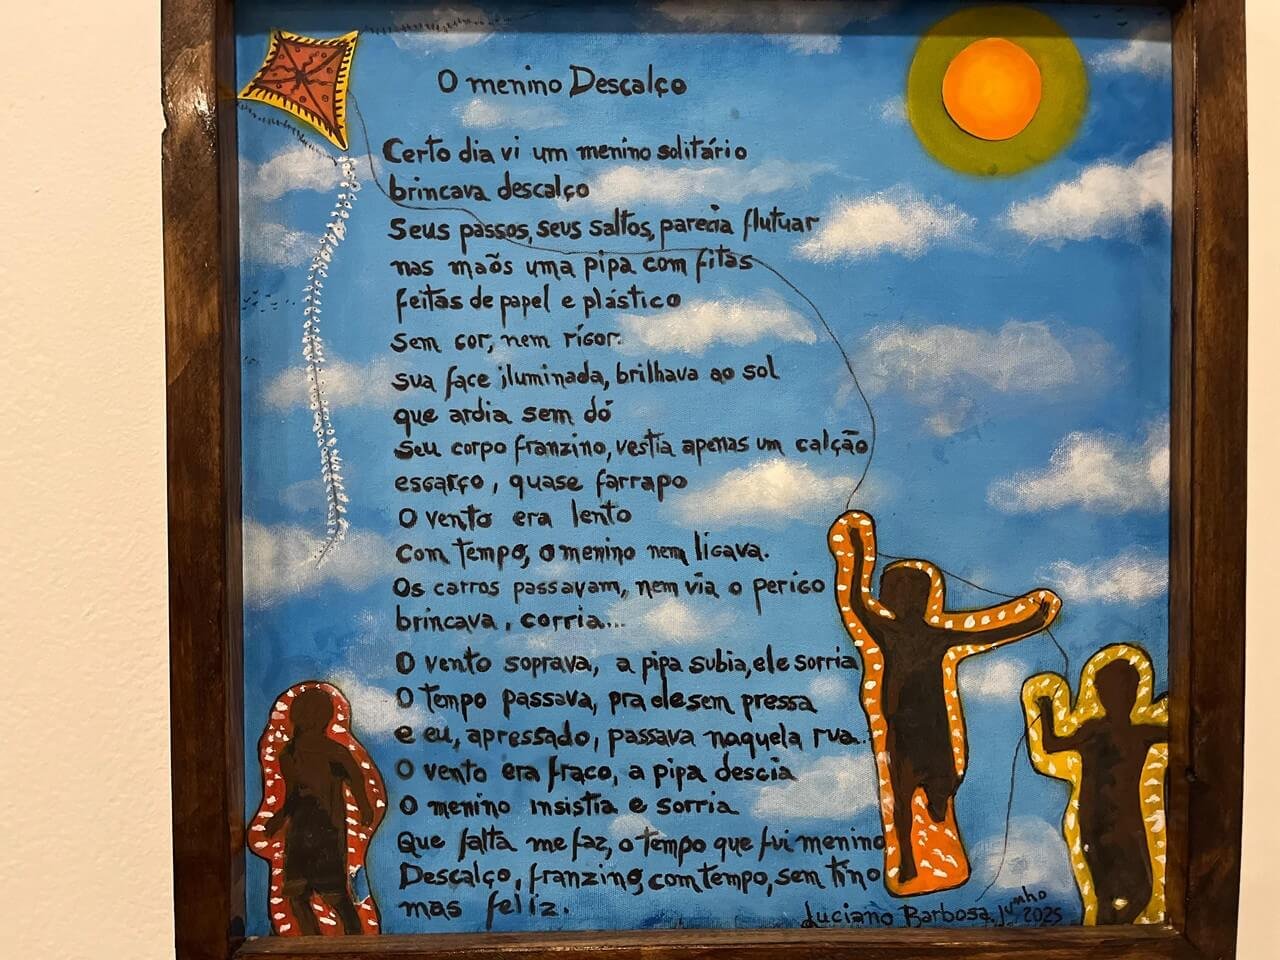 O menino Descalço
Certo dia vi um menino solitário
brincava descalço
Seus passos, seus saltos, parecia flutuar
nas maõs uma pipa com fitas
feitas de papel e plástico
sem cor, nem rigor.
sua face iluminada, brilhava ao sol
que ardia sem dó
Seu corpo franzino, vestia apenas um calção
esgarço, quase farrapo
O vento era lento
com tempo, o menino nem ligava.
Os carros passavam, nem via o perigo
brincava, corria...
O vento soprava, a pipa subia, ele sorria
O tempo passava, pra ele sem pressa
e eu, apressado, passava naquela rua...
O vento era fraco, a pipa descia
O menino insistia e sorria
Que falta me faz, o tempo que fui menino
Descalço, franzino, com tempo, sem tino
mas feliz.
Luciano Barbosa, Junho 2025